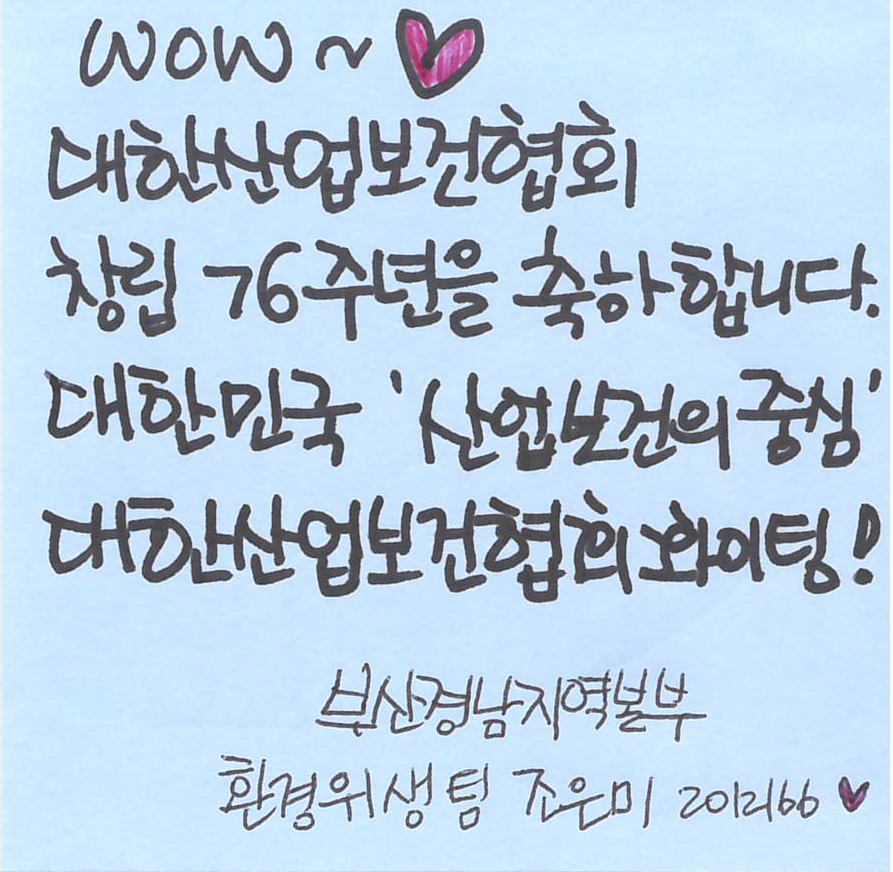 WOW ~ ♥
대한산업보건협회
창립 76주년을 축하합니다.
대한민국 '산업보건의 중심'
대한산업보건협회 화이팅!
부산경남지역본부
환경위생팀 조은미 2012166 ♥